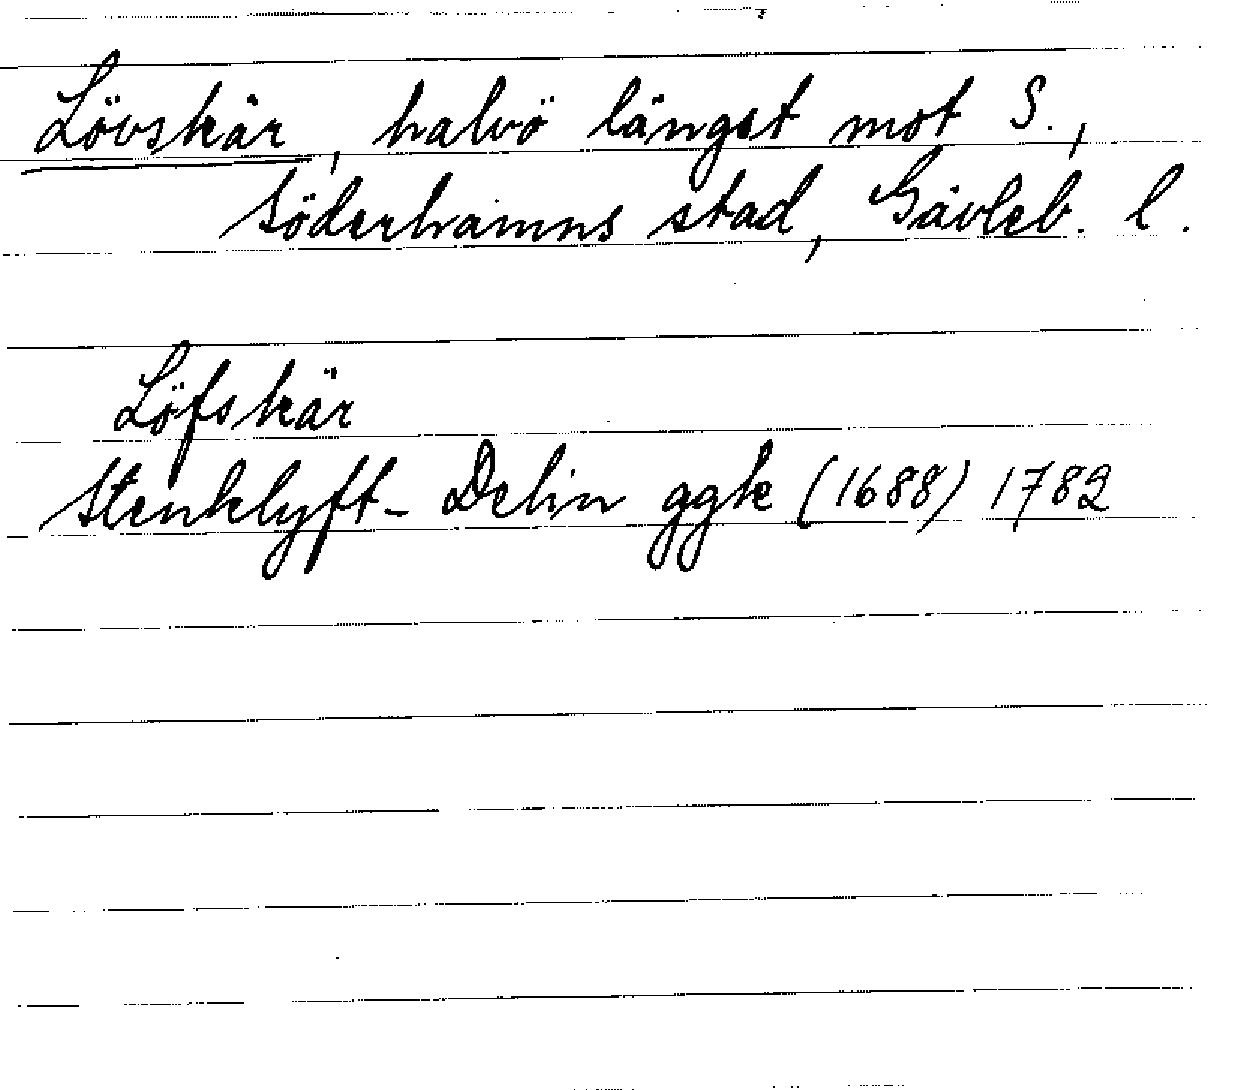 Lövskär, halvö längst mot S.,
Söderhamns stad, Gävleb. l.
Löfskär
Stenklyft - Delin ggk (1688) 1782